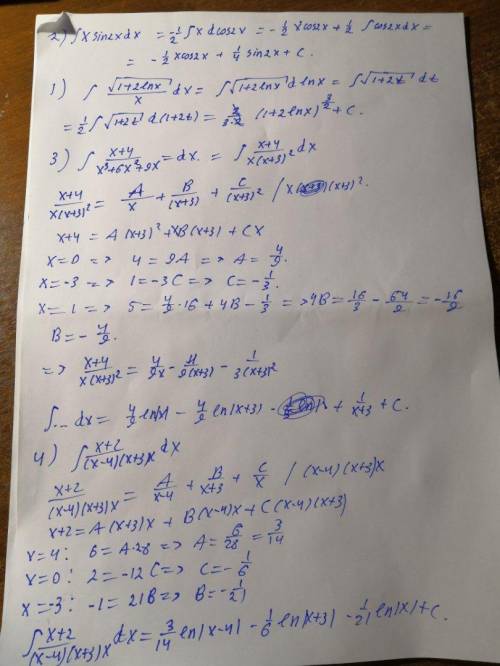 2) ∫ x sin2x dx = -1/2 ∫ x d cos2x = -1/2 x cos2x + 1/2 ∫ cos2x dx =
= -1/2 x cos2x + 1/4 sin2x + C.
1) ∫ √(1+2lnx)/x dx = ∫ √(1+2lnx) d lnx = ∫ √(1+2t) dt
= 1/2 ∫ √(1+2t) d(1+2t) = (1+2lnx)^(3/2) + C.
3) ∫ (x+4)/(x³+6x²+9x) = dx. = ∫ (x+4)/(x(x+3)²) dx
(x+4)/(x(x+3)²) = A/x + B/(x+3) + C/(x+3)² / x(x+3)².
x+4 = A(x+3)² + xB(x+3) + Cx
x=0 => 4 = 9A => A = 4/9.
x=-3 => 1 = -3C => C = -1/3.
x=1 => 5 = 4/9·16 + 4B - 1/3 => 4B = 16/3 - 64/9 = -16/9
B = -4/9.
=> (x+4)/(x(x+3)²) = 4/9x - 4/9(x+3) - 1/3(x+3)²
∫... dx = 4/9 ln|x| - 4/9 ln|x+3| + 1/(x+3) + C.
4) ∫ (x+2)/((x-4)(x+3)x) dx
(x+2)/((x-4)(x+3)x) = A/(x-4) + B/(x+3) + C/x / (x-4)(x+3)x
x+2 = A(x+3)x + B(x-4)x + C(x-4)(x+3)
x=4: 6 = A·28 => A = 6/28 = 3/14
x=0: 2 = -12C => C = -1/6
x=-3: -1 = 21B => B = -1/21
∫ (x+2)/((x-4)(x+3)x) dx = 3/14 ln|x-4| - 1/6 ln|x+3| - 1/21 ln|x| + C.